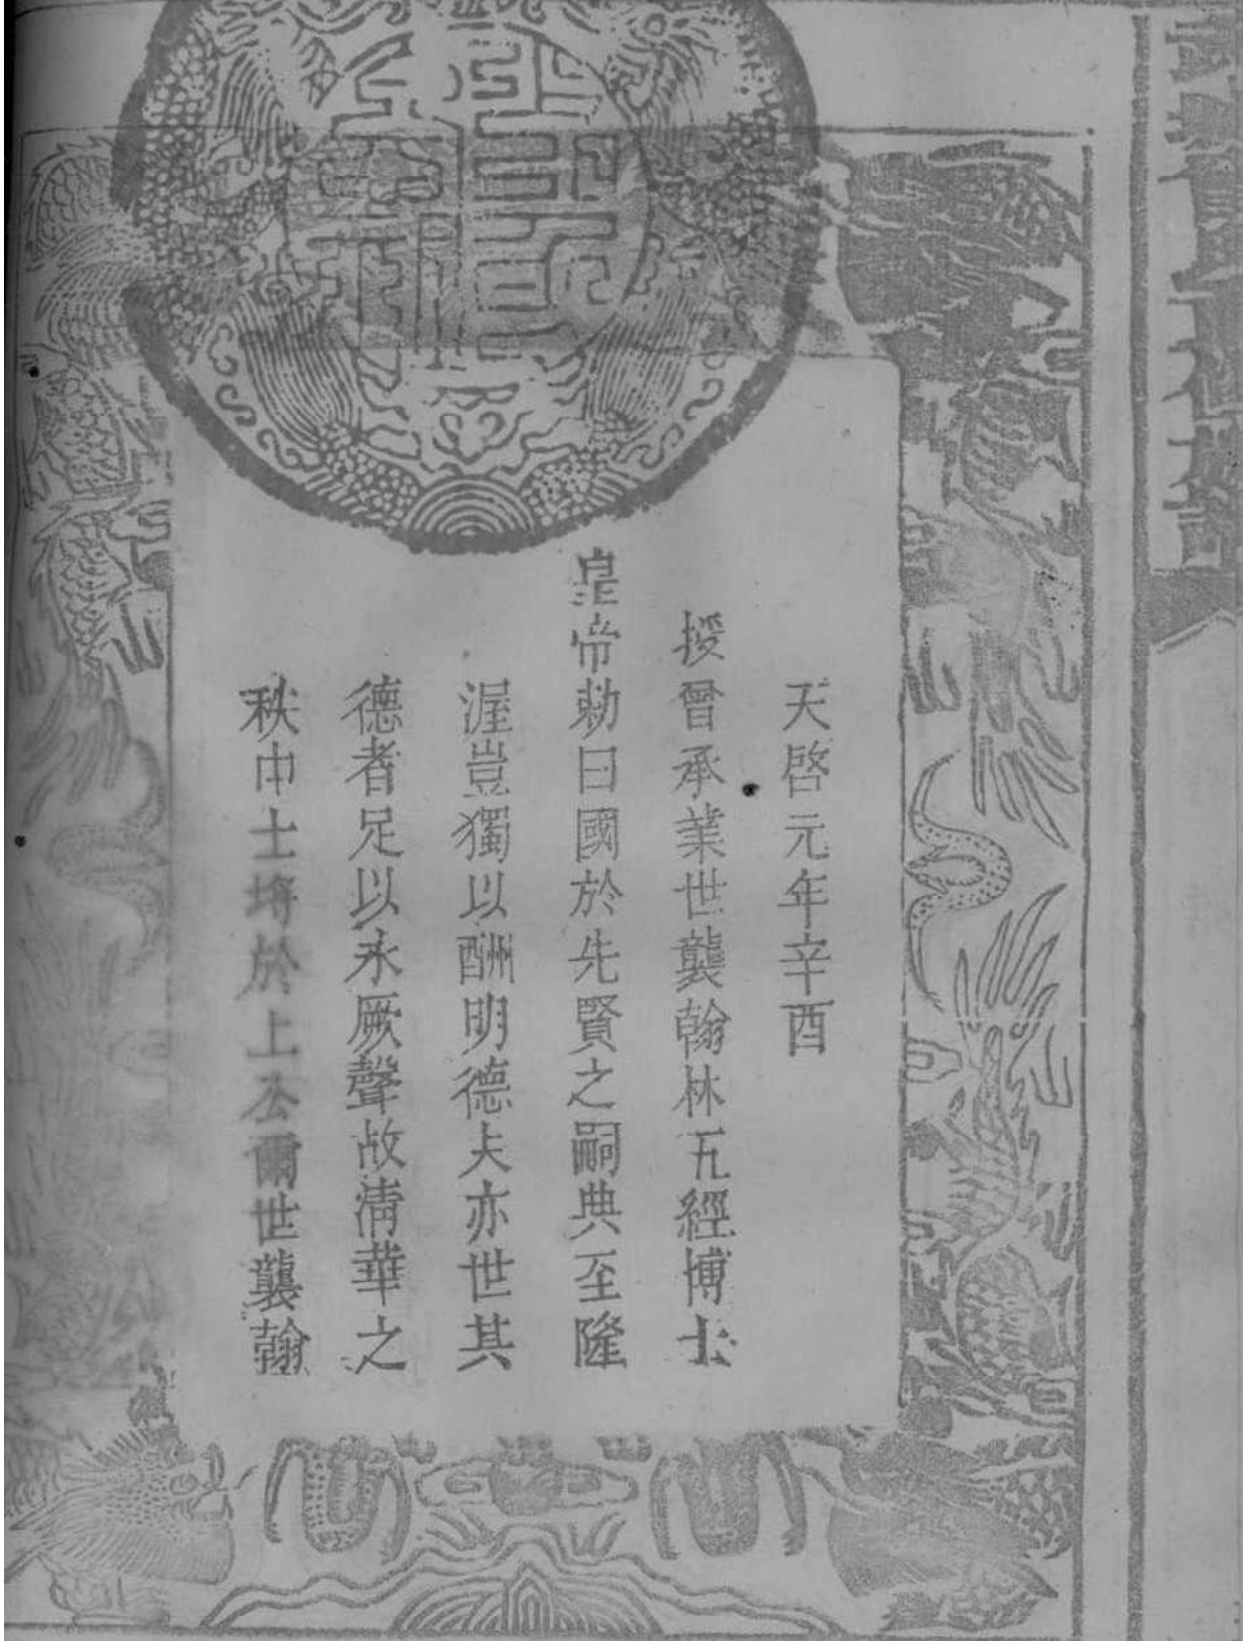 天啓元年辛酉
授曾承業世襲翰林五經博士
皇帝勅曰國於先賢之嗣典至隆
渥豈獨以酬明德夫亦世其
德者足以永厥聲故清華之
秩中士埒於上公爾世襲翰